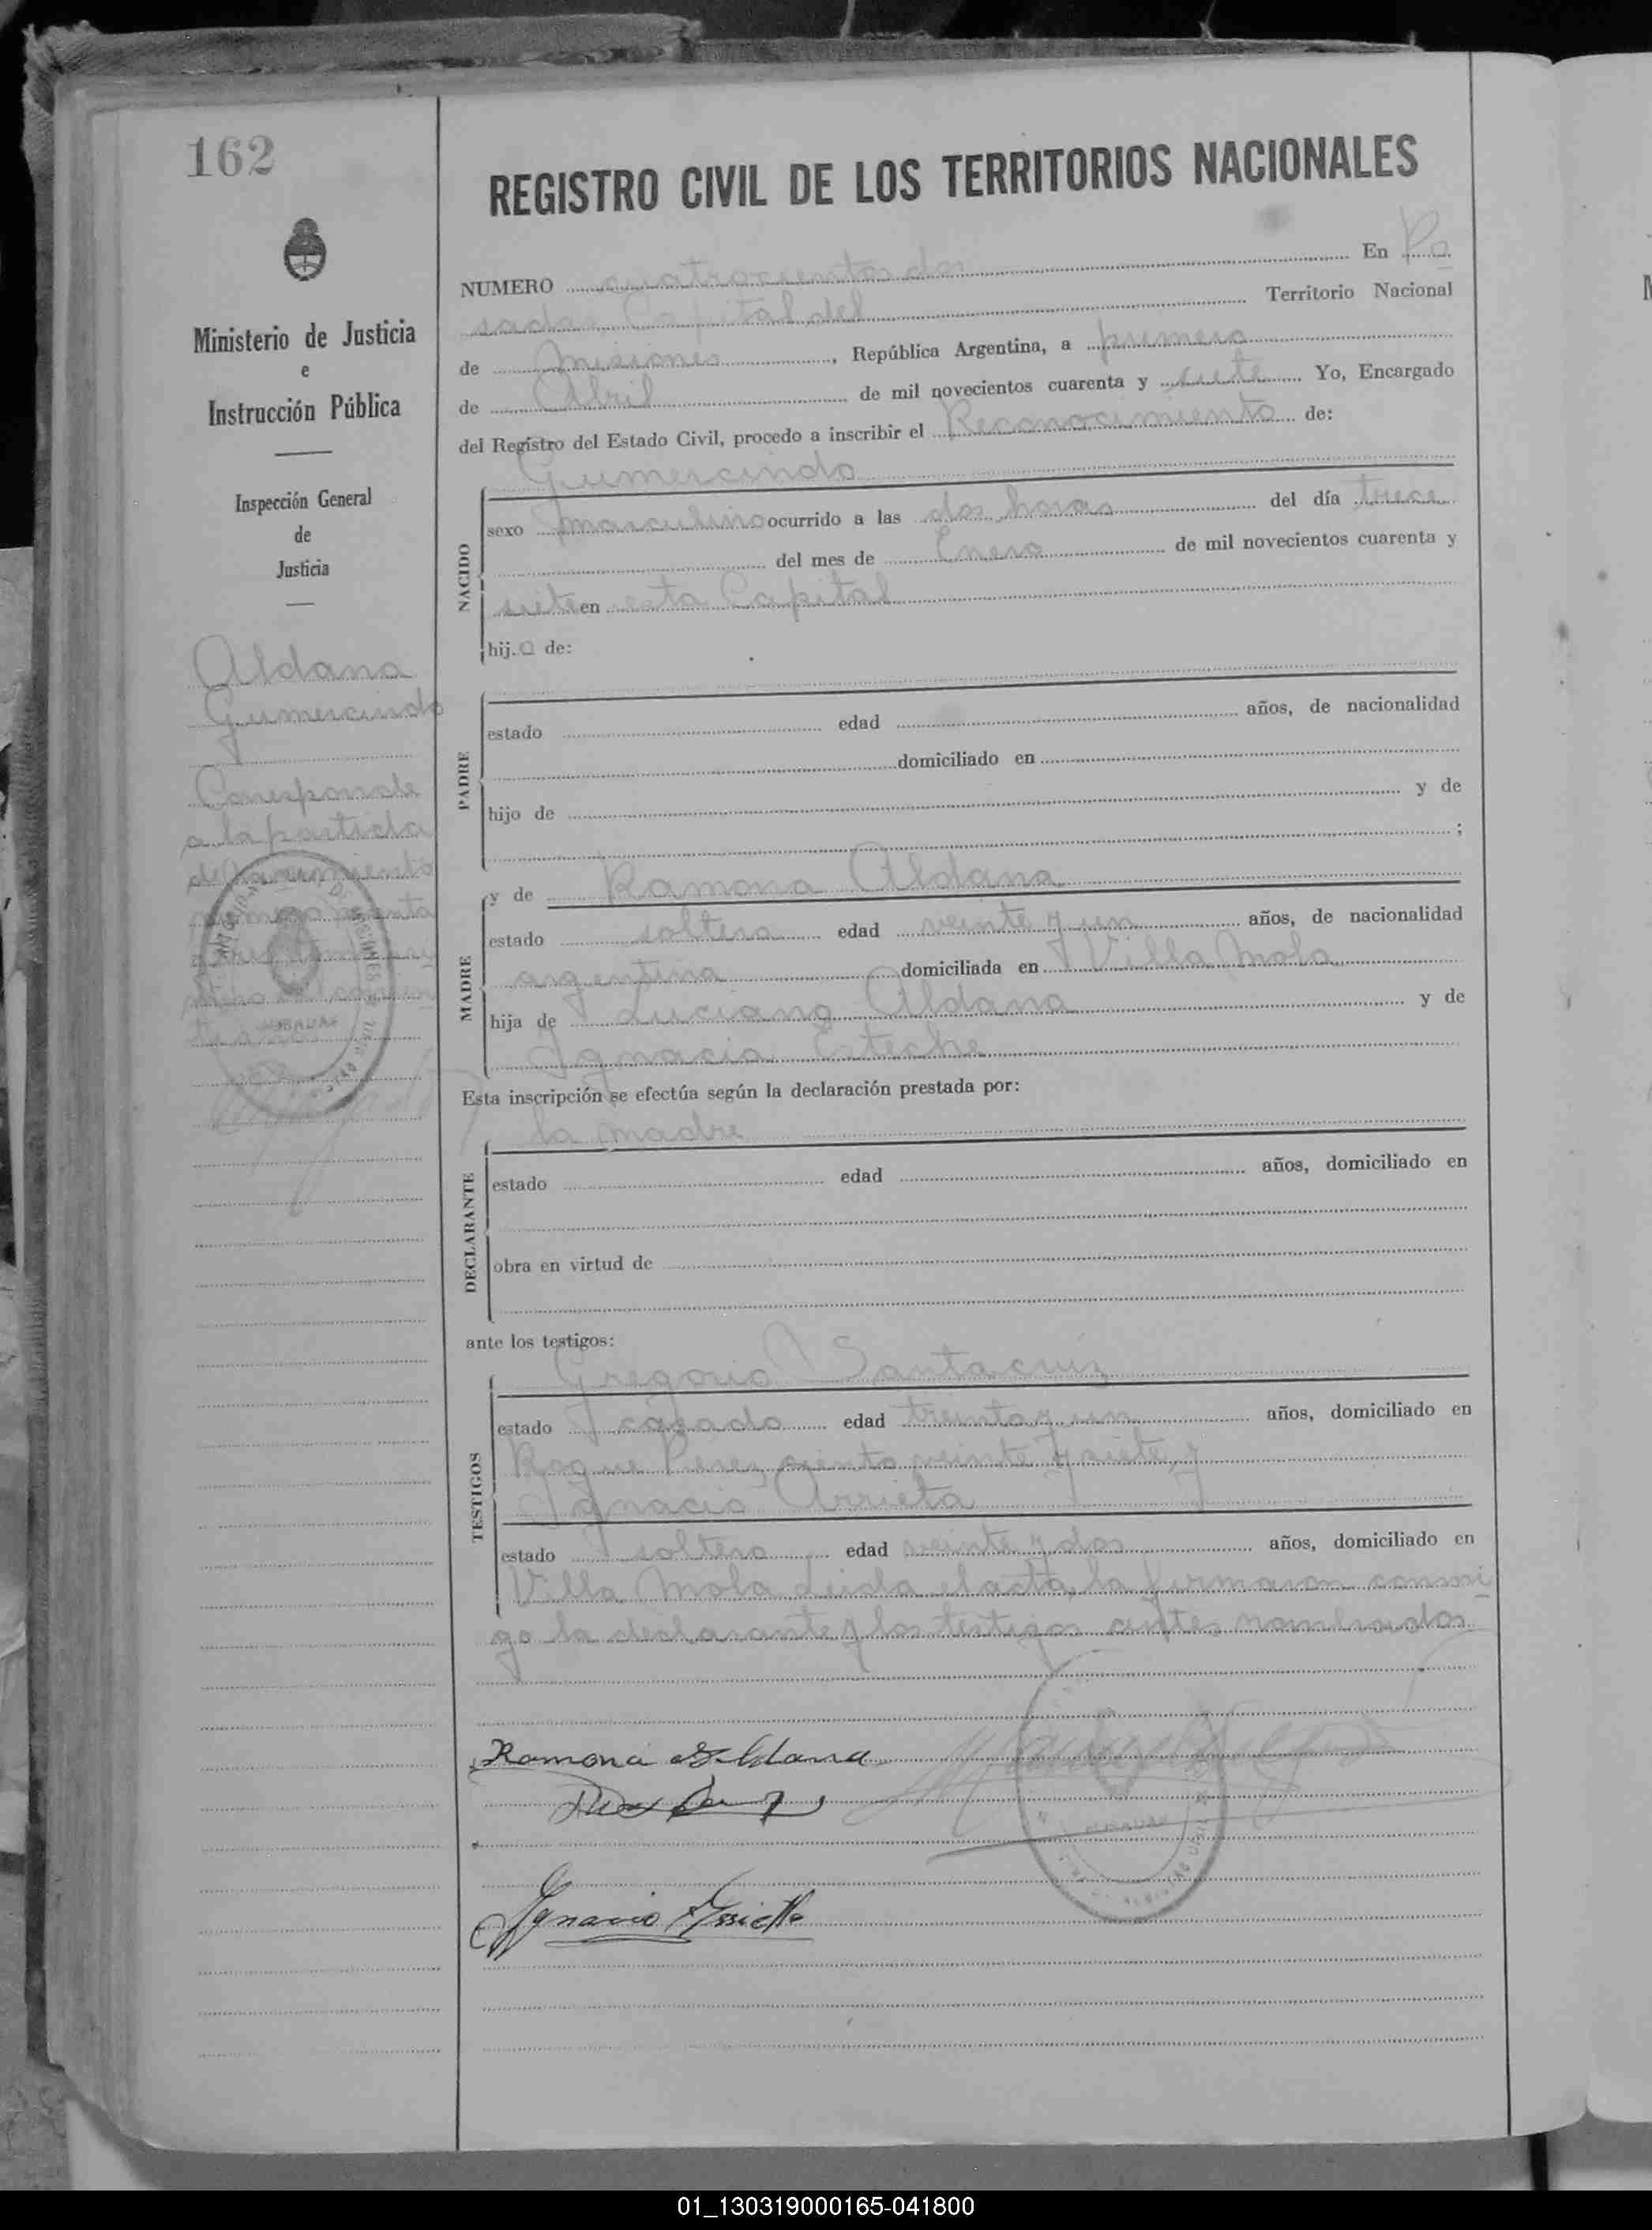 162
Ministerio de Justicia
e
Instrucción Pública
Inspección General
de
Justicia
Aldana
Gumercindo
Corresponde
a la partida
de nacimiento
número
REGISTRO CIVIL DE LOS TERRITORIOS NACIONALES
NUMERO cuatrocientos dos En Po
sadas Capital del Territorio Nacional
de Misiones, República Argentina, a primero
de Abril de mil novecientos cuarenta y siete Yo, Encargado
del Registro del Estado Civil, procedo a inscribir el Reconocimiento de:
Gumercindo
NACIDO
sexo masculino ocurrido a las dos horas del día trece
del mes de Enero de mil novecientos cuarenta y
siete en esta Capital
hijo de:
PADRE
estado edad años, de nacionalidad
domiciliado en
hijo de y de
;
y de Ramona Aldana
MADRE
estado soltera edad veinte y un años, de nacionalidad
argentina domiciliada en Villa Mola
hija de Luciano Aldana y de
Ignacia Esteche
Esta inscripción se efectúa según la declaración prestada por:
la madre
DECLARANTE
estado edad años, domiciliado en
obra en virtud de
ante los testigos:
Gregorio Santacruz
TESTIGOS
estado casado edad treinta y un años, domiciliado en
Roque Perez ciento veinte y siete y
Ignacio Arrieta
estado soltero edad veinte y dos años, domiciliado en
Villa Mola Leida el acta, la firmaron conmi
go la declarante y los testigos antes nombrados
Ramona Aldana
Ignacio Arrieta
01_130319000165-041800